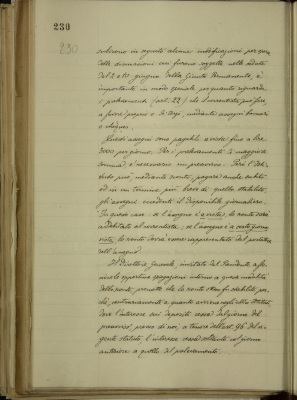 230
230
subirono in seguito alcune modificazioni per una
delle discussioni cui furono soggette nelle sedute
del 2 e 10 giugno della Giunta Permanente, è
importante in modo speciale per quanto riguarda
i prelevamenti (art. 22) che il correntista può fare
a favore proprio o di terzi, mediante assegni bancari
o chèques.
Questi assegni sono pagabili a vista fino a lire
3000 per giorno. Per i prelevamenti di maggior
somma, è necessario un preavviso. Però l'Isti-
tuto può, mediante sconto, pagare anche subito
od in un termine più breve di quello stabilito
gli assegni eccedenti il disponibile giornaliero.
In questo caso: se l'assegno è a vista, lo sconto sarà
addebitato al correntista; se l'assegno è a certo giorno
vista, lo sconto dovrà essere rappresentato dal possessore
dell'assegno.
Il Direttore Generale, invitato dal Presidente a for-
nire le opportune spiegazioni intorno a questa modalità
dello sconto, premette che lo sconto stesso fu stabilito per-
chè, contrariamente a quanto avviene negli altri Istituti
dove l'interesse sui depositi cessa dal giorno del
preavviso, presso di noi, a tenore dell'art. 96 del vi-
gente statuto, l'interesse cessa soltanto col giorno
anteriore a quello del prelevamento.